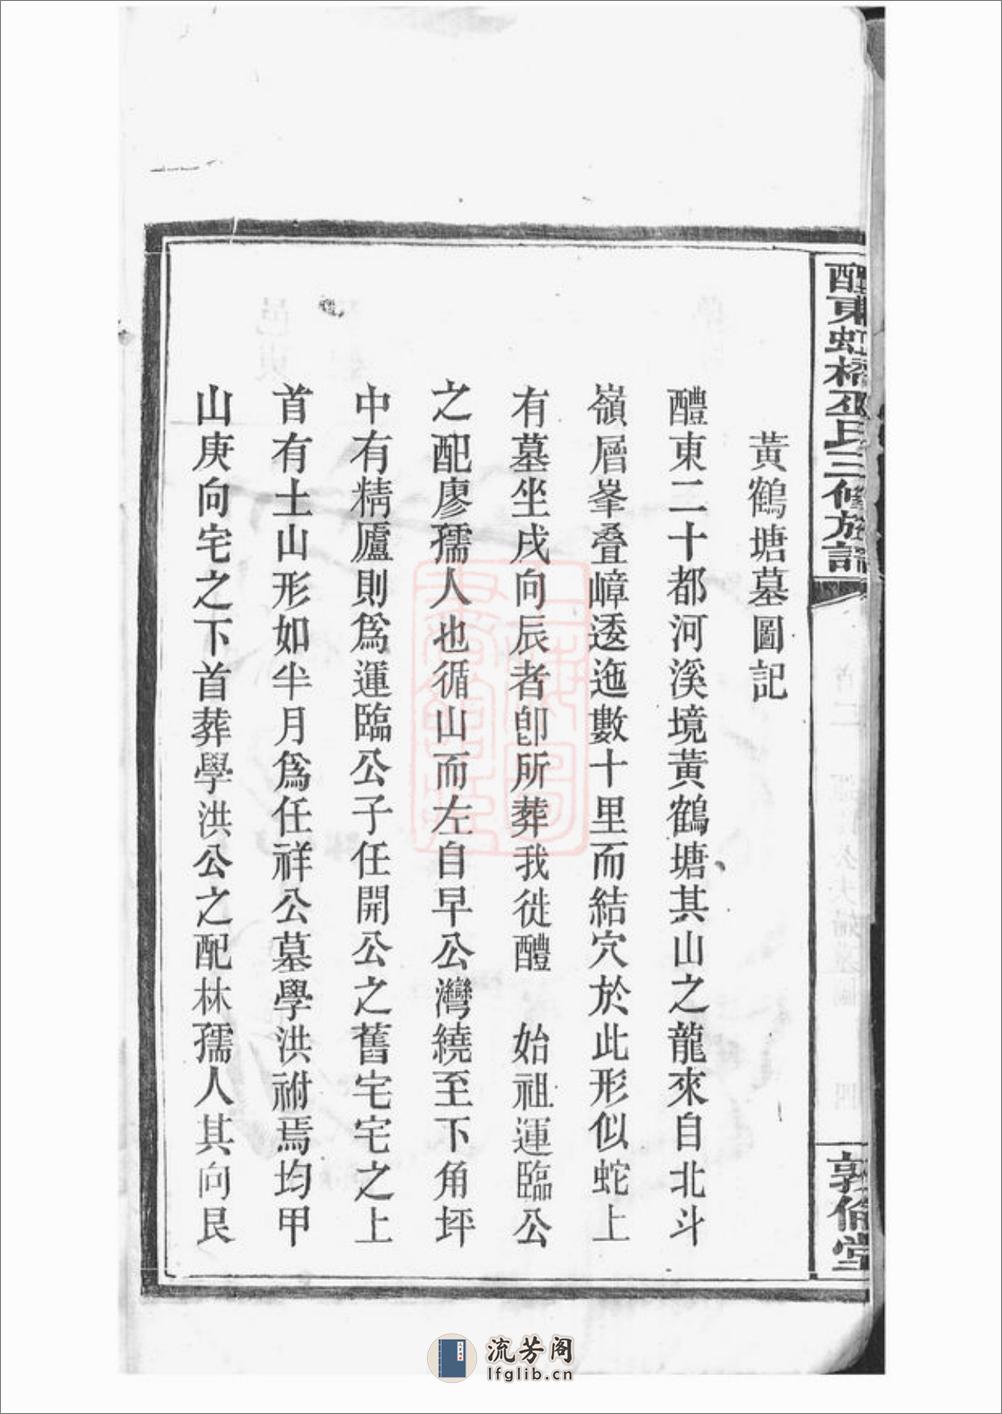 醴東虹橋巫氏三修族譜
敦倫堂
黃鶴塘墓圖記
醴東二十都河溪境黃鶴塘其山之龍來自北斗
嶺層峯叠嶂逶迤數十里而結穴於此形似蛇上
有墓坐戌向辰者卽所葬我徙醴　始祖運臨公
之配廖孺人也循山而左自早公灣繞至下角坪
中有精廬則爲運臨公子任開公之舊宅宅之上
首有土山形如半月爲任祥公墓學洪祔焉均甲
山庚向宅之下首葬學洪公之配林孺人其向艮
流芳阁
lfglib.cn